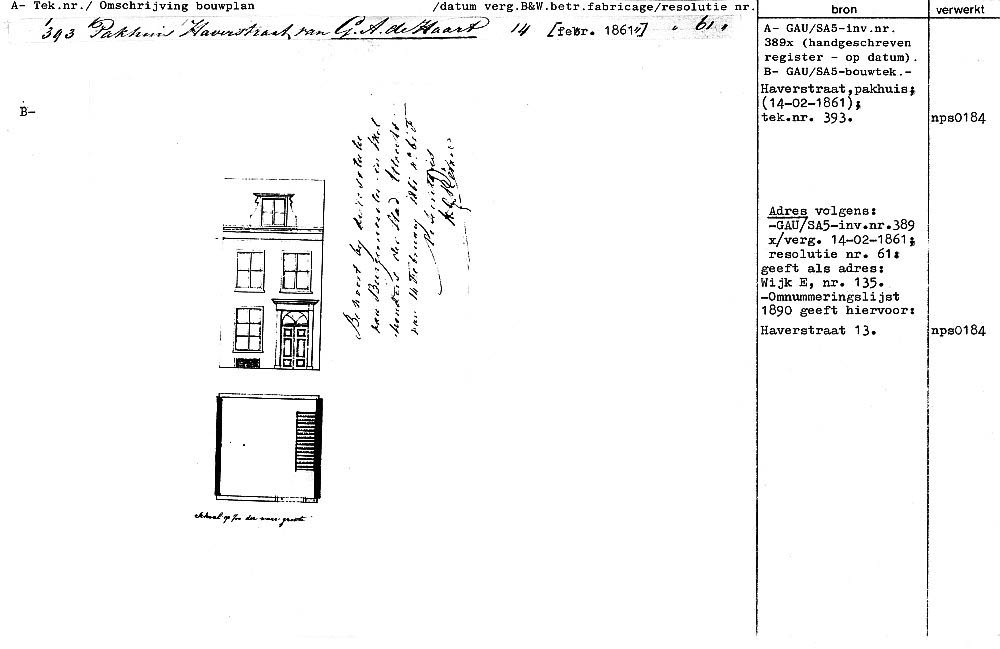 A- Tek.nr./ Omschrijving bouwplan /datum verg.B&W.betr.fabricage/resolutie nr.
393 Pakhuis Haverstraat van G. A. de Haart 14 [febr. 1861] " 61.
B-
Behoort bij de resolutie
van Burgemeester en Wet
houders der Stad Utrecht
van 14 Februarij 1861 n° 61
De Secretaris
Schaal op der ware grootte
bron
A- GAU/SA5-inv.nr.
389x (handgeschreven
register - op datum).
B- GAU/SA5-bouwtek.-
Haverstraat,pakhuis;
(14-02-1861);
tek.nr. 393.
Adres volgens:
-GAU/SA5-inv.nr.389
x/verg. 14-02-1861;
resolutie nr. 61:
geeft als adres:
Wijk E, nr. 135.
-Omnummeringslijst
1890 geeft hiervoor:
Haverstraat 13.
verwerkt
nps0184
nps0184